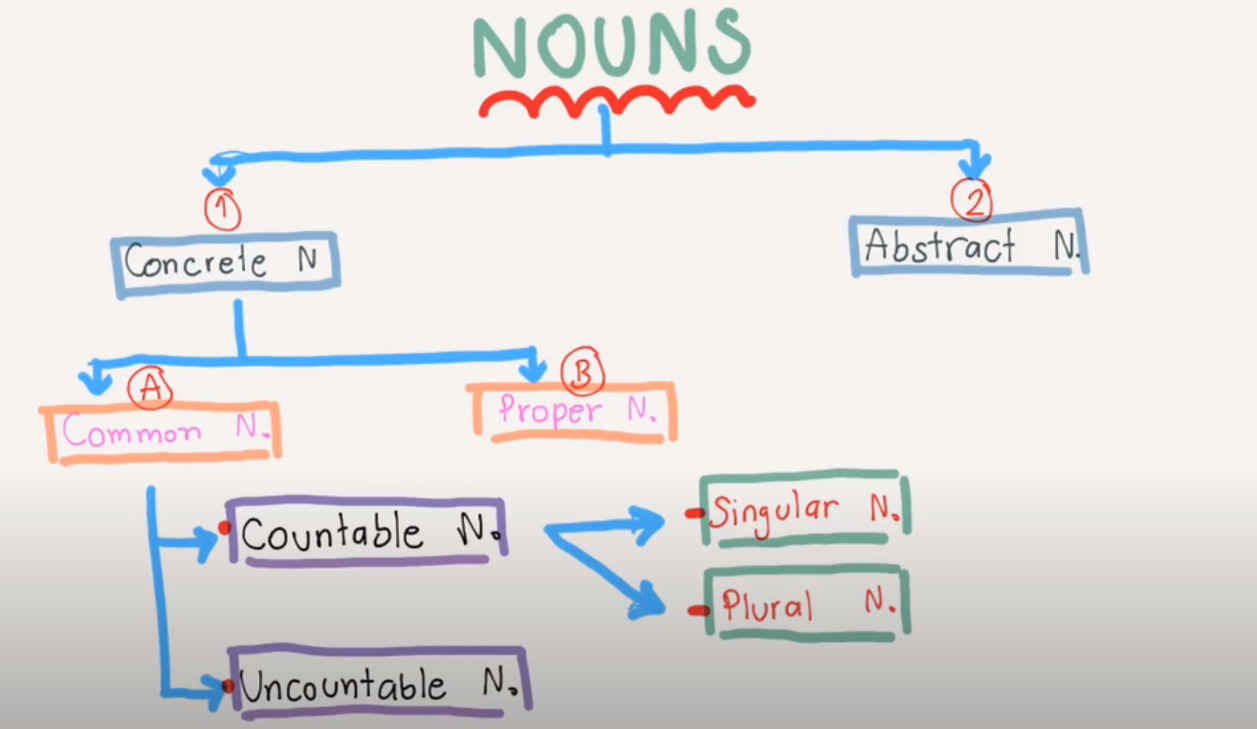 NOUNS
1
2
Concrete N
Abstract N.
A
B
Common N.
Proper N.
Countable N.
Singular N.
Plural N.
Uncountable N.